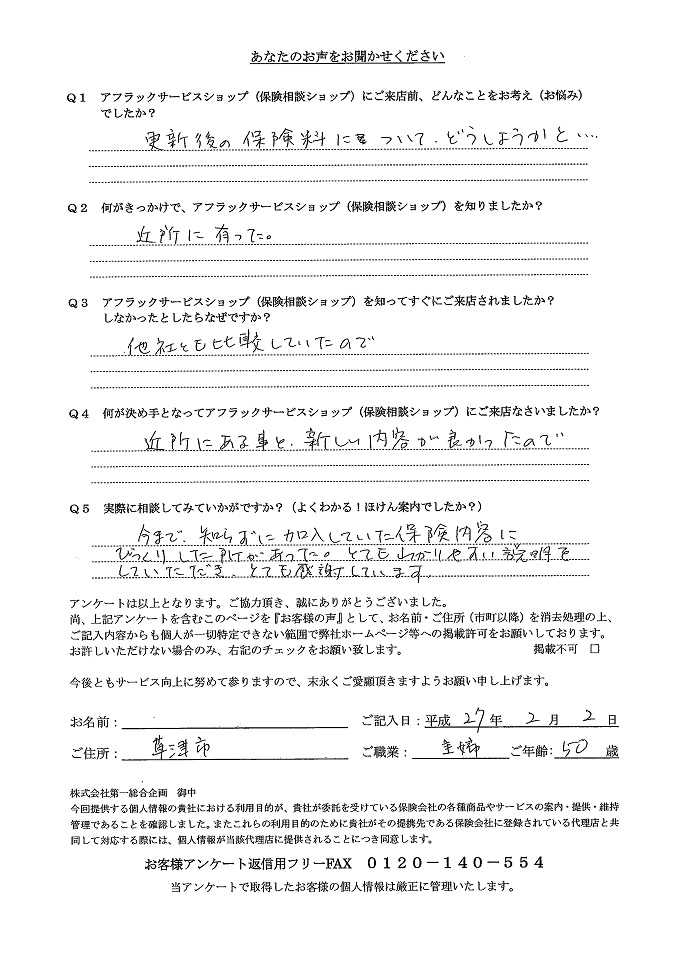 あなたのお声をお聞かせください
Q1 アフラックサービスショップ（保険相談ショップ）にご来店前、どんなことをお考え（お悩み）
でしたか？
更新後の保険料について、どうしようかと…
Q2 何がきっかけで、アフラックサービスショップ（保険相談ショップ）を知りましたか？
近所に有った。
Q3 アフラックサービスショップ（保険相談ショップ）を知ってすぐにご来店されましたか？
しなかったとしたらなぜですか？
他社とも比較していたので
Q4 何が決め手となってアフラックサービスショップ（保険相談ショップ）にご来店なさいましたか？
近所にある事と、新しい内容が良かったので
Q5 実際に相談してみていかがですか？（よくわかる！ほけん案内でしたか？）
今まで、知らずに加入していた保険内容に
びっくりした所があった。とてもわかりやすい説明を
していただき、とても感謝しています。
アンケートは以上となります。ご協力頂き、誠にありがとうございました。
尚、上記アンケートを含むこのページを『お客様の声』として、お名前・ご住所（市町以降）を消去処理の上、
ご記入内容からも個人が一切特定できない範囲で弊社ホームページ等への掲載許可をお願いしております。
お許しいただけない場合のみ、右記のチェックをお願い致します。 掲載不可 □
今後ともサービス向上に努めて参りますので、末永くご愛顧頂きますようお願い申し上げます。
お名前： ご記入日：平成 27 年 2 月 2 日
ご住所： 草津市 ご職業： 主婦 ご年齢：50 歳
株式会社第一総合企画 御中
今回提供する個人情報の貴社における利用目的が、貴社が委託を受けている保険会社の各種商品やサービスの案内・提供・維持
管理であることを確認しました。またこれらの利用目的のために貴社がその提携先である保険会社に登録されている代理店と共
同して対応する際には、個人情報が当該代理店に提供されることにつき同意します。
お客様アンケート返信用フリーFAX 0120－140－554
当アンケートで取得したお客様の個人情報は厳正に管理いたします。